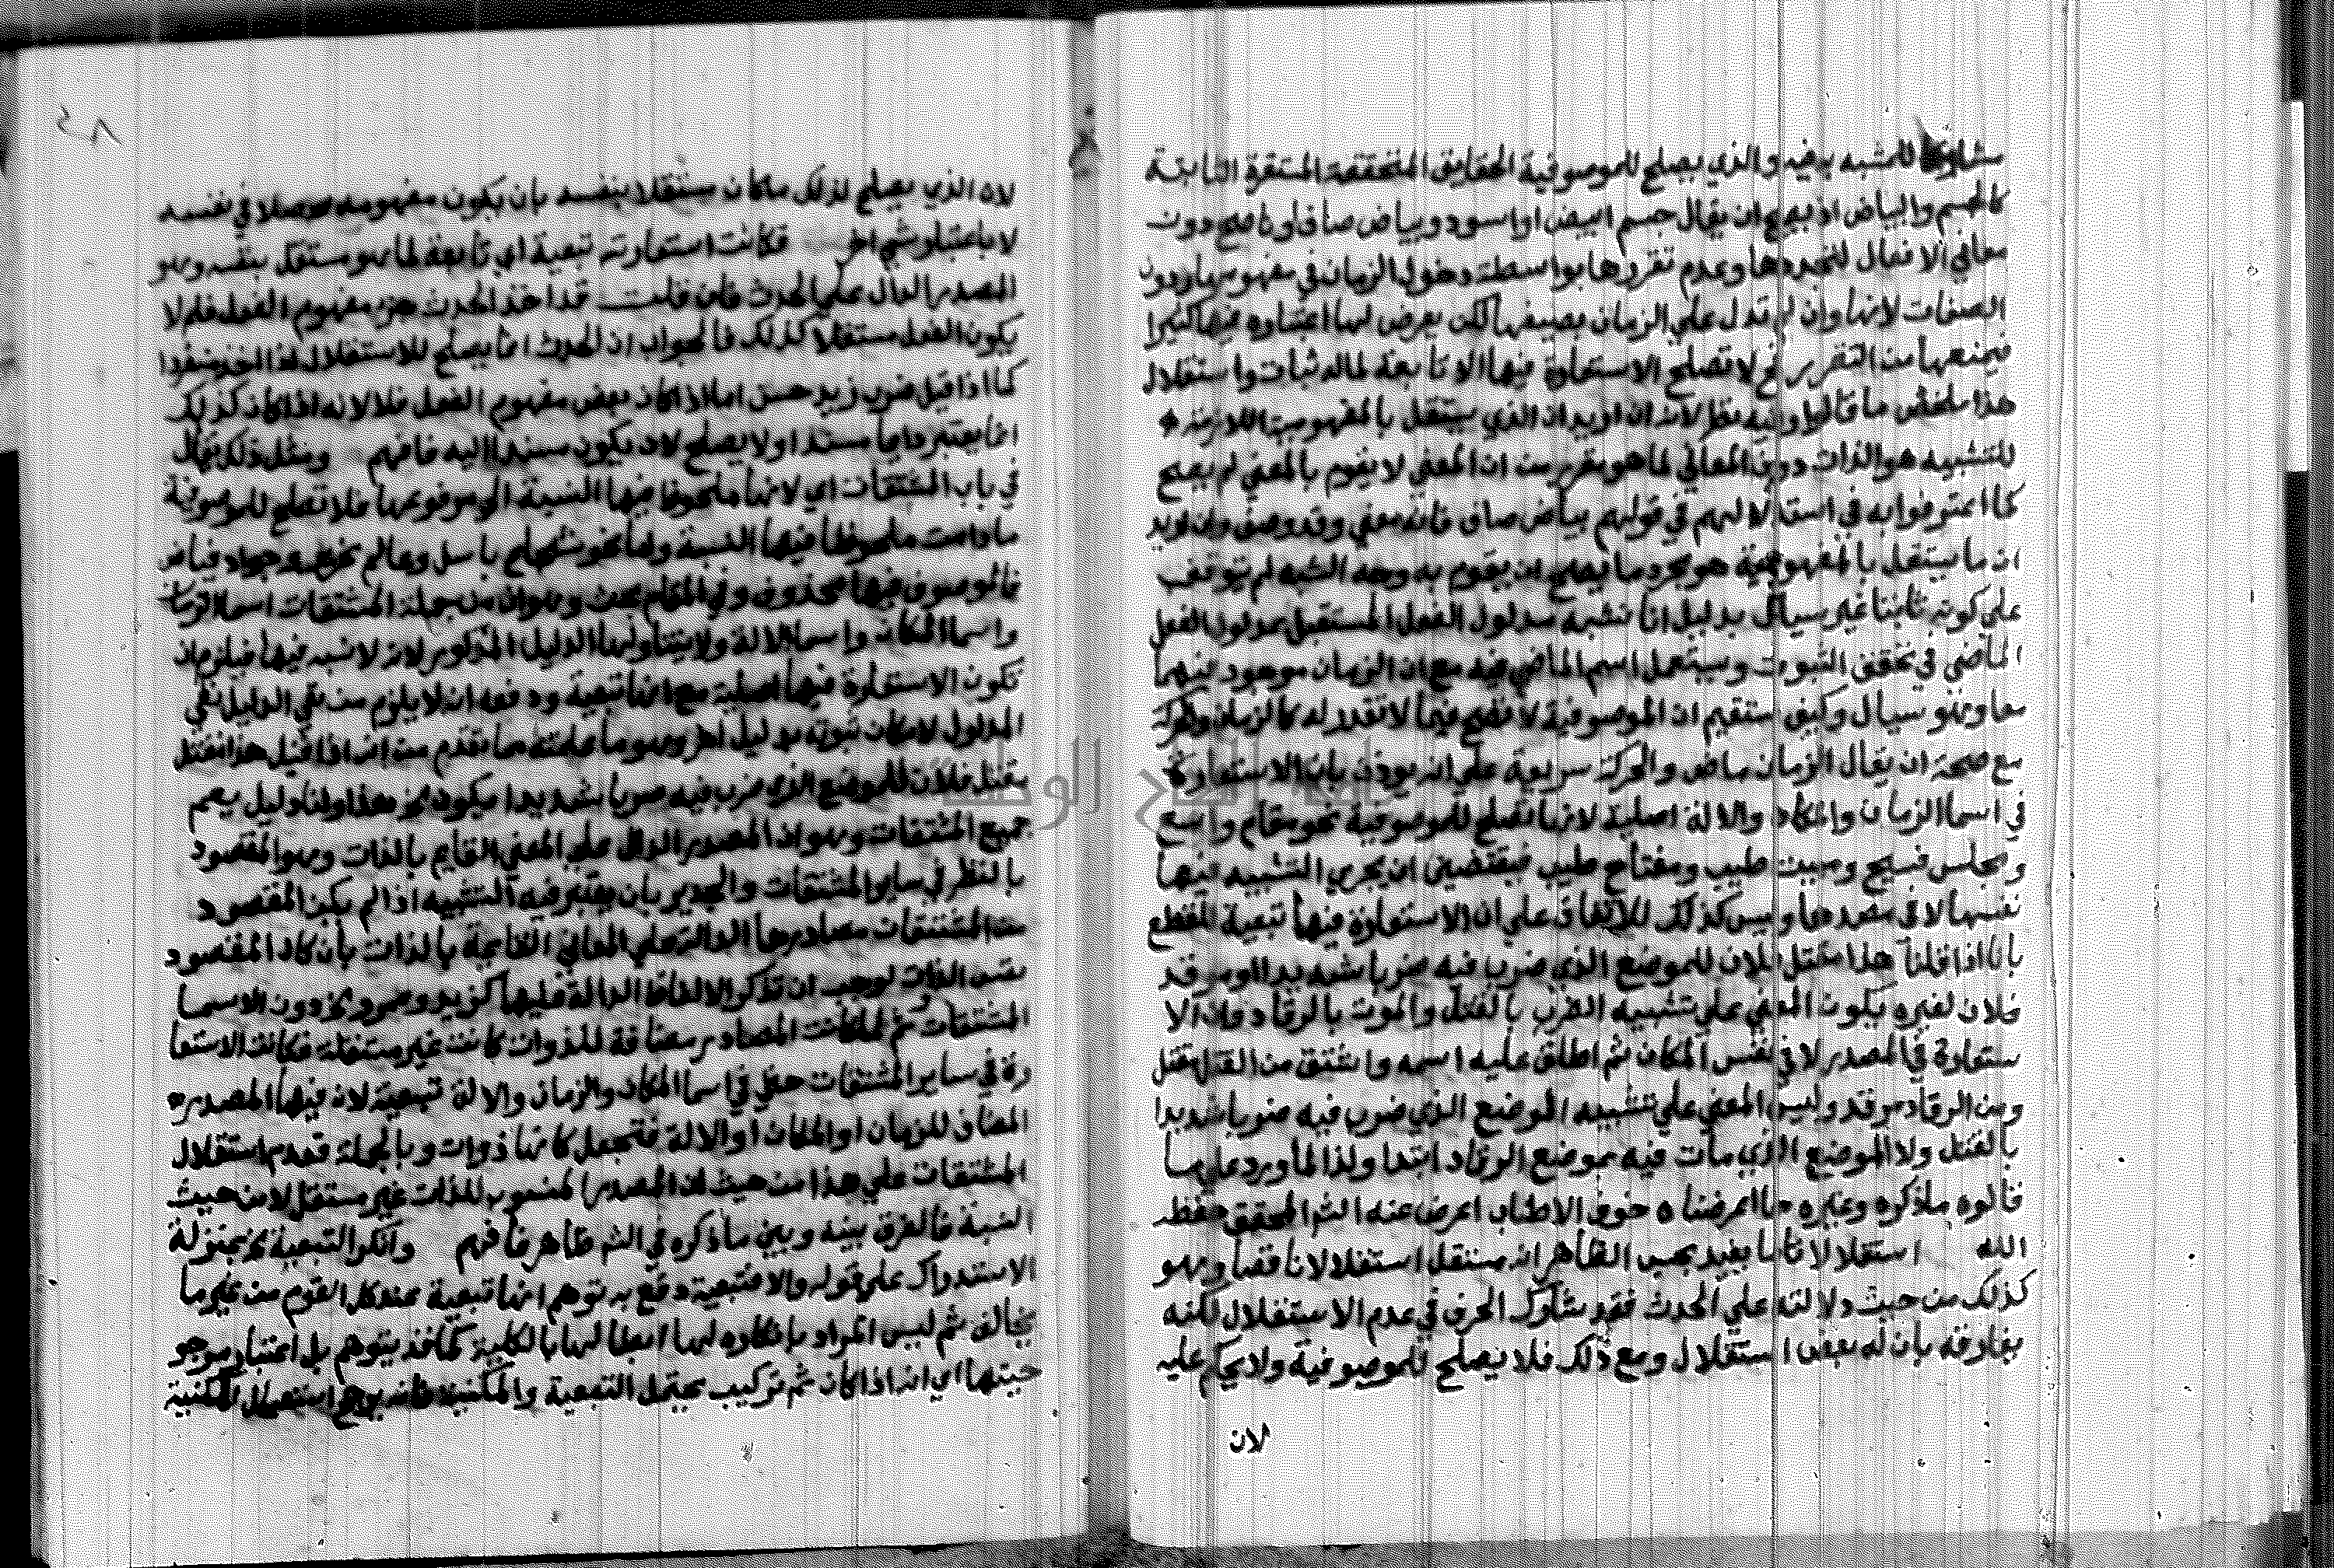 مشاركا للمشبه به فيه والذي يصلح للموصوفية الحقايق المتحققة المتقررة الثابتة
كالجسم والبياض اذ يصح ان يقال جسم ابيض او اسود وبياض صاف او ناصح دون
معاني الافعال لتجددها وعدم تقررها بواسطة دخول الزمان في مفهومها ودون
الصفات لانها وان لم تدل علي الزمان بصيغها لكن يعرض لها اعتباره فيها كثيرا
فيمنعها من التقرر فح لا تصلح الاستعارة فيها الا تابعة لماله ثبات واستقلال
هذا ملخص ما قالوا وفيه نظر لانه ان اريد ان الذي يستقل بالمفهومية اللازمة
للتشبيه هو الذات دون المعاني لما هو مقرر من ان المعني لا يقوم بالمعني لم يصح
كما اعترفوا به في استدلالهم في قولهم بياض صاف فانه معني وقد وصف وان اريد
ان ما يستقل بالمفهومية هو مجرد ما يصلح ان يقوم به وجه الشبه لم يتوقف
علي كونه ثابتا غير سيال بدليل انا نشبه مدلول الفعل المستقبل بمدلول الفعل
الماضي في تحقق الثبوت ويستعمل اسم الماضي فيه مع ان الزمان موجود فيهما
معا وهو سيال وكيف يستقيم ان الموصوفية لا تصح فيما لا تقرر له كالزمان والحركة
مع صحة ان يقال الزمان ماض والحركة سريعة علي انه يوذن بان الاستعارة
في اسما الزمان والمكان والالة اصلية لانها تصلح للموصوفية نحو مقام واسع
ومجلس فسيح ومبيت طيب ومفتاح طيب فيقتضي ان يجري التشبيه فيها
نفسها لا في مصدرها وليس كذلك للاتفاق علي ان الاستعارة فيها تبعية للقطع
بانا اذا قلنا هذا مقتل فلان للموضع الذي ضرب فيه ضربا شديدا ومرقد
فلان لغيره يكون المعني علي تشبيه الضرب بالقتل والموت بالرقاد فان الا
ستعارة في المصدر لا في نفس المكان ثم اطلق عليه اسمه واشتق من القتل مقتل
ومن الرقاد مرقد وليس المعني علي تشبيه الموضع الذي ضرب فيه ضربا شديدا
بالقتل ولا الموضع الذي مات فيه بموضع الرقاد ابتدا ولذا لما ورد علي ما
قالوه ما ذكره وغيره مما اعرضنا ه خوف الاطناب اعرض عنه الشم المحقق حفظه
الله استقلالا تاما يفيد بحسب الظاهر انه مستقل استقلالا ناقصا وهو
كذلك من حيث دلالته علي الحدث فقد شارك الحرف في عدم الاستقلال لكنه
يفارقه بان له بعض استقلال ومع ذلك فلا يصلح للموصوفية ولا يحكم عليه
لان
لان الذي يصلح لذلك ما كان مستقلا بنفسه بان يكون مفهومه محصلا في نفسه
لا باعتبار شي اخر فكانت استعارته تبعية اي تابعة لما هو مستقل بنفسه وهو
المصدر الدال علي الحدث فان قلت قد اخذ الحدث جزء مفهوم الفعل فلم لا
يكون الفعل مستقلا كذلك فالجواب ان الحدث انما يصلح للاستقلال اذا اخذ منفردا
كما اذا قيل ضرب زيد حسن اما اذا كان بعض مفهوم الفعل فلا لانه اذا كان كذلك
انما يعتبر دايما مسندا ولا يصلح لان يكون مسندا اليه فافهم ومثل ذلك يقال
في باب المشتقات اي لانها ملحوظا فيها النسبة الي مرفوعها فلا تصلح للموصوفية
ما دامت ملحوظا فيها النسبة واما نحو شجاع باسل وعالم نحرير وجواد فياض
فالموصوف فيها محذوف وفي المقام بحث وهو ان من جملة المشتقات اسما الزمان
واسما المكان واسما الالة ولا يتناولها الدليل المذكور لانه لا نسبه فيها فيلزم ان
تكون الاستعارة فيها اصلية مع انها تبعية ودفعه انه لا يلزم من نفي الدليل نفي
المدلول لامكان ثبوته بدليل اخر وهو ما علمته مما تقدم من انه اذا قيل هذا مقتل
فلان للموضع الذي ضرب فيه ضربا شديدا يكون نحو هذا ولنا دليل يعم
جميع المشتقات وهو ان المصدر الدال علي المعني القايم بالذات وهو المقصود
بالنظر في ساير المشتقات والجدير بان يعتبر فيه التشبيه اذ لو لم يكن المقصود
من المشتقات مصادرها الدالة علي المعاني القايمة بالذات بان كان المقصود
نفس الذات لوجب ان تذكر الالفاظ الدالة عليها كزيد وعمرو دون الاسما
المشتقات ثم لما كانت المصادر مضافة للذوات كانت غير مستقلة فكانت الاستعا
رة في ساير المشتقات حتي في اسما المكان والزمان والالة تبعية لان فيها المصدر
المضاف للزمان او المكان او الالة فتجعل كانها ذوات وبالجملة فعدم استقلال
المشتقات علي هذا من حيث ان المصدر المنسوب للذات غير مستقل لا من حيث
النسبة فالفرق بينه وبين ما ذكره في الشم ظاهر فافهم وانكر التبعية بمنزلة
الاستدراك علي قوله والا فتبعية دفع به توهم انها تبعية عند كل القوم من غير ما
يخالف ثم ليس المراد بانكاره لها ابطالها بالكلية كما قد يتوهم بل اعتبار مرجو
حيتها اي انه اذا كان ثم تركيب يحتمل التبعية والمكنية فانه يرجح استعمال المكنية